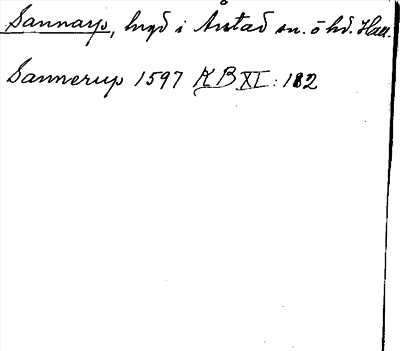 Sannarp, hrgd i Årstad sn. o hd. Hall.
Sannerup 1597 KB XI: 182